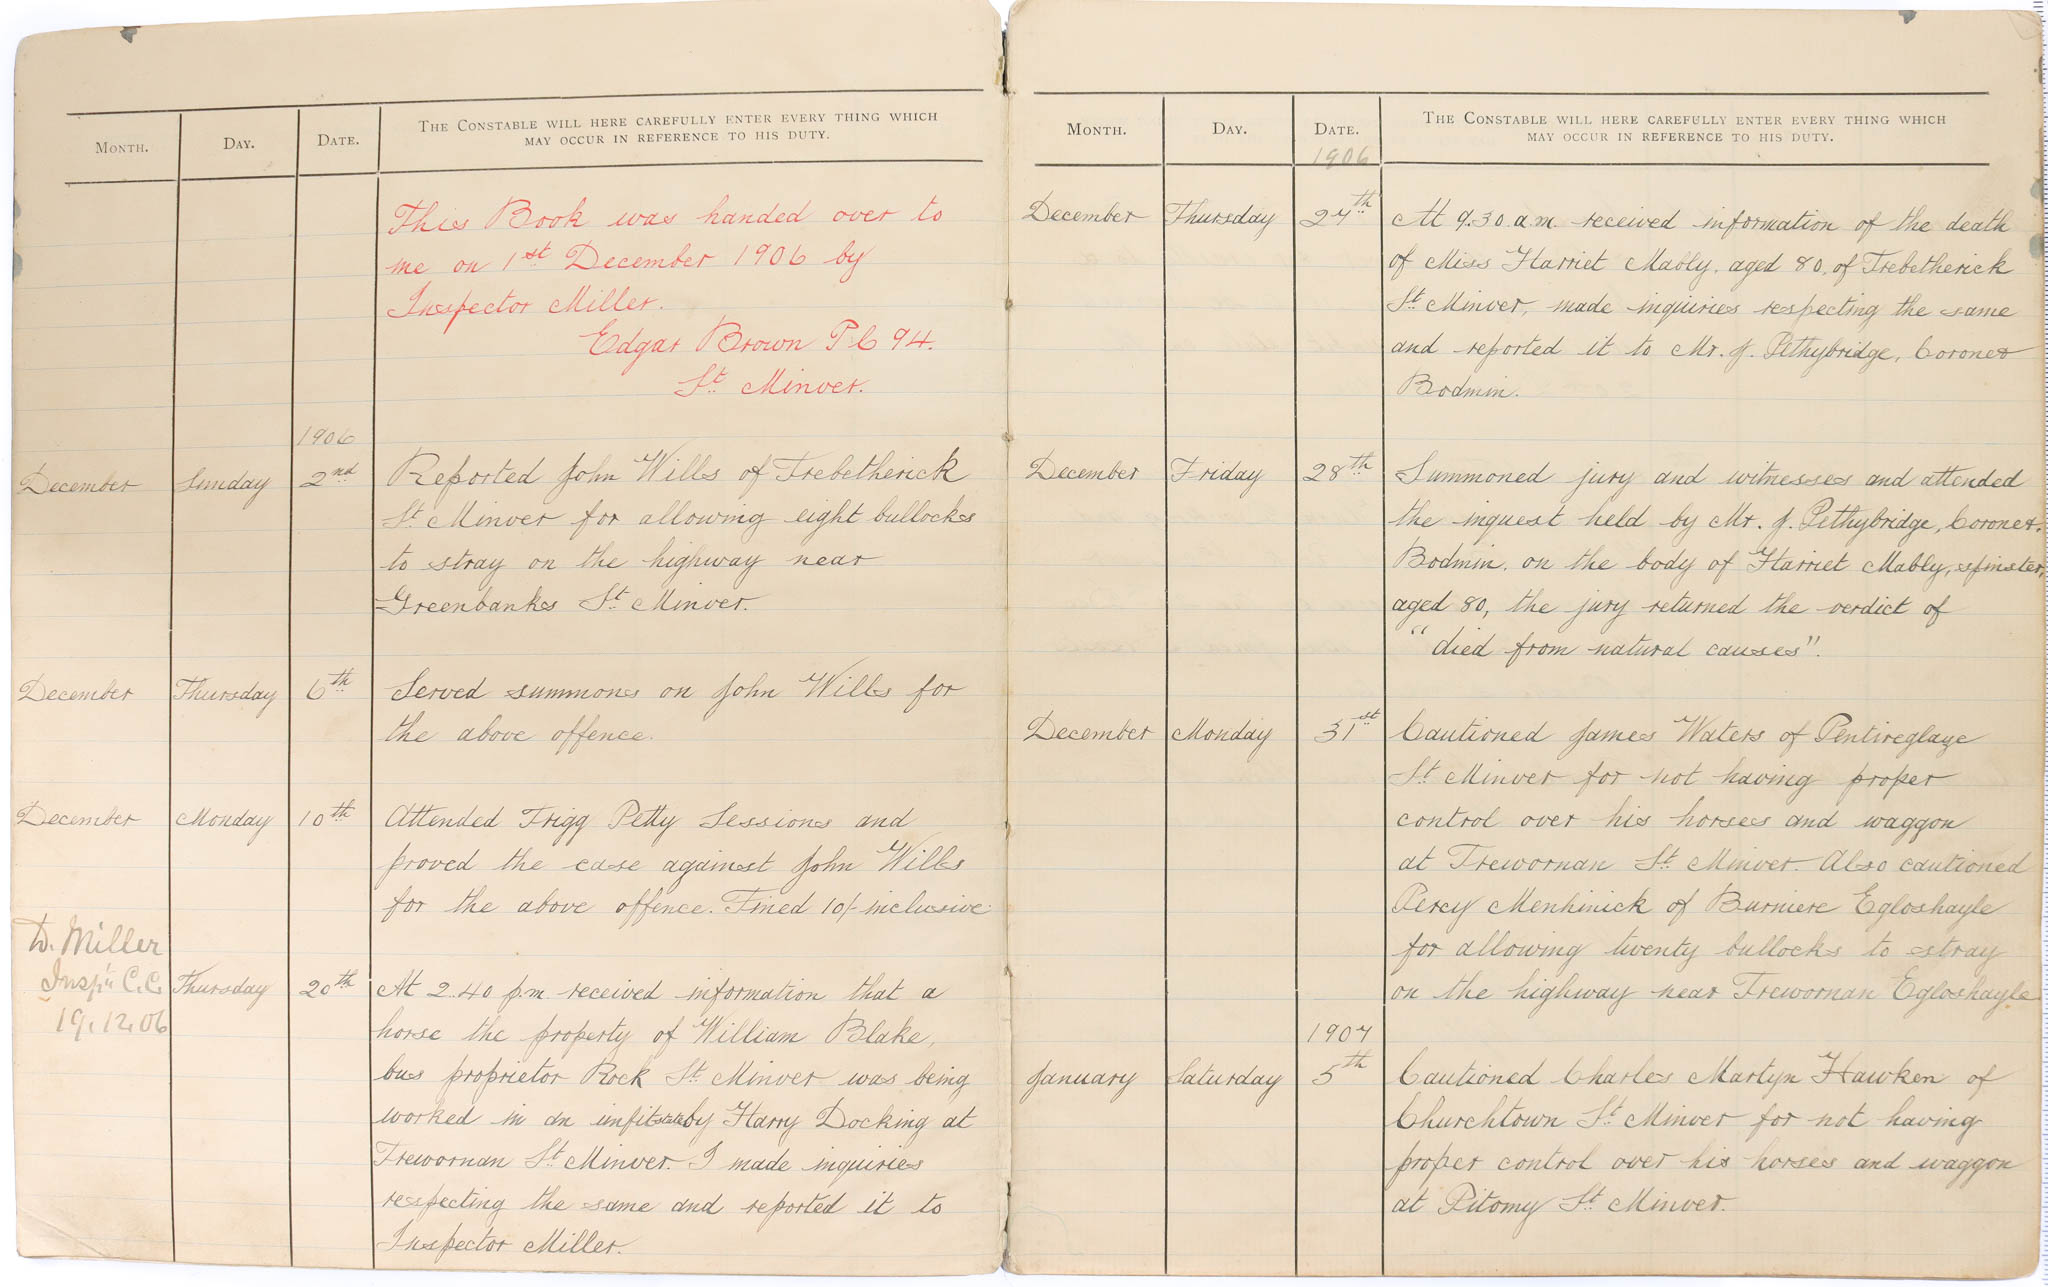 MONTH. DAY. DATE. THE CONSTABLE WILL HERE CAREFULLY ENTER EVERY THING WHICH
MAY OCCUR IN REFERENCE TO HIS DUTY.
This Book was handed over to
me on 1st December 1906 by
Inspector Miller.
Edgar Brown P.C 94.
St Minver.
1906
December Sunday 2nd Reported John Wills of Trebetherick
St Minver for allowing eight bullocks
to stray on the highway near
Greenbanks St Minver.
December Thursday 6th Served summons on John Wills for
the above offence.
December Monday 10th Attended Trigg Petty Sessions and
proved the case against John Wills
for the above offence. Fined 10/- inclusive.
D. Miller
Inspr C.C.
19.12.06
Thursday 20th At 2.40 p.m. received information that a
horse the property of William Blake,
bus proprietor Rock St Minver was being
worked in an unfit state by Harry Docking at
Trewornan St Minver. I made inquiries
respecting the same and reported it to
Inspector Miller.
MONTH. DAY. DATE. THE CONSTABLE WILL HERE CAREFULLY ENTER EVERY THING WHICH
MAY OCCUR IN REFERENCE TO HIS DUTY.
1906
December Thursday 27th At 9.30 a.m. received information of the death
of Miss Harriet Mably, aged 80, of Trebetherick
St Minver, made inquiries respecting the same
and reported it to Mr. J. Pethybridge, Coroner
Bodmin.
December Friday 28th Summoned jury and witnesses and attended
the inquest held by Mr. J. Pethybridge, Coroner.
Bodmin. on the body of Harriet Mably, spinster,
aged 80, the jury returned the verdict of
"died from natural causes".
December Monday 31st Cautioned James Waters of Pentireglaze
St Minver for not having proper
control over his horses and waggon
at Trewornan St Minver. Also cautioned
Percy Menhinick of Burniere Egloshayle
for allowing twenty bullocks to stray
on the highway near Trewornan Egloshayle
1907
January Saturday 5th Cautioned Charles Martyn Hawken of
Churchtown St Minver for not having
proper control over his horses and waggon
at Pitomy St Minver.